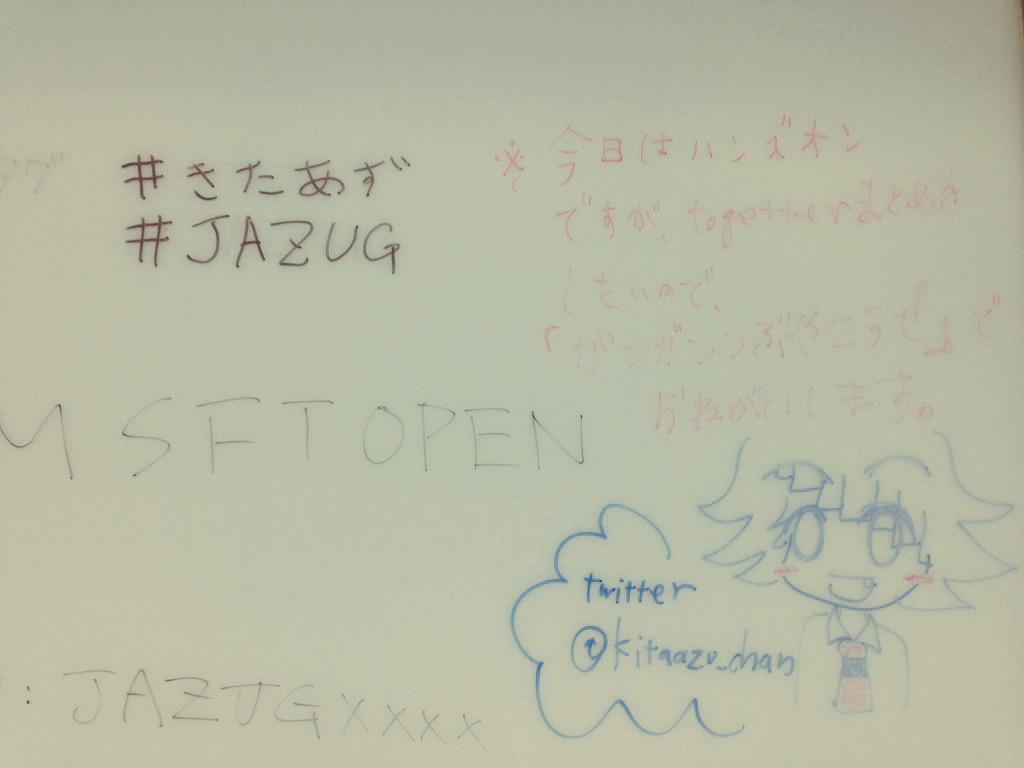 #きたあず
#JAZUG
※今日はハンズオン
ですが、togetterまとめき
したいので、
「ガンガンつぶやこうぜ」で
おねがいします。
MSFTOPEN
twitter
@kitaazu_chan
: JAZUGxxxx